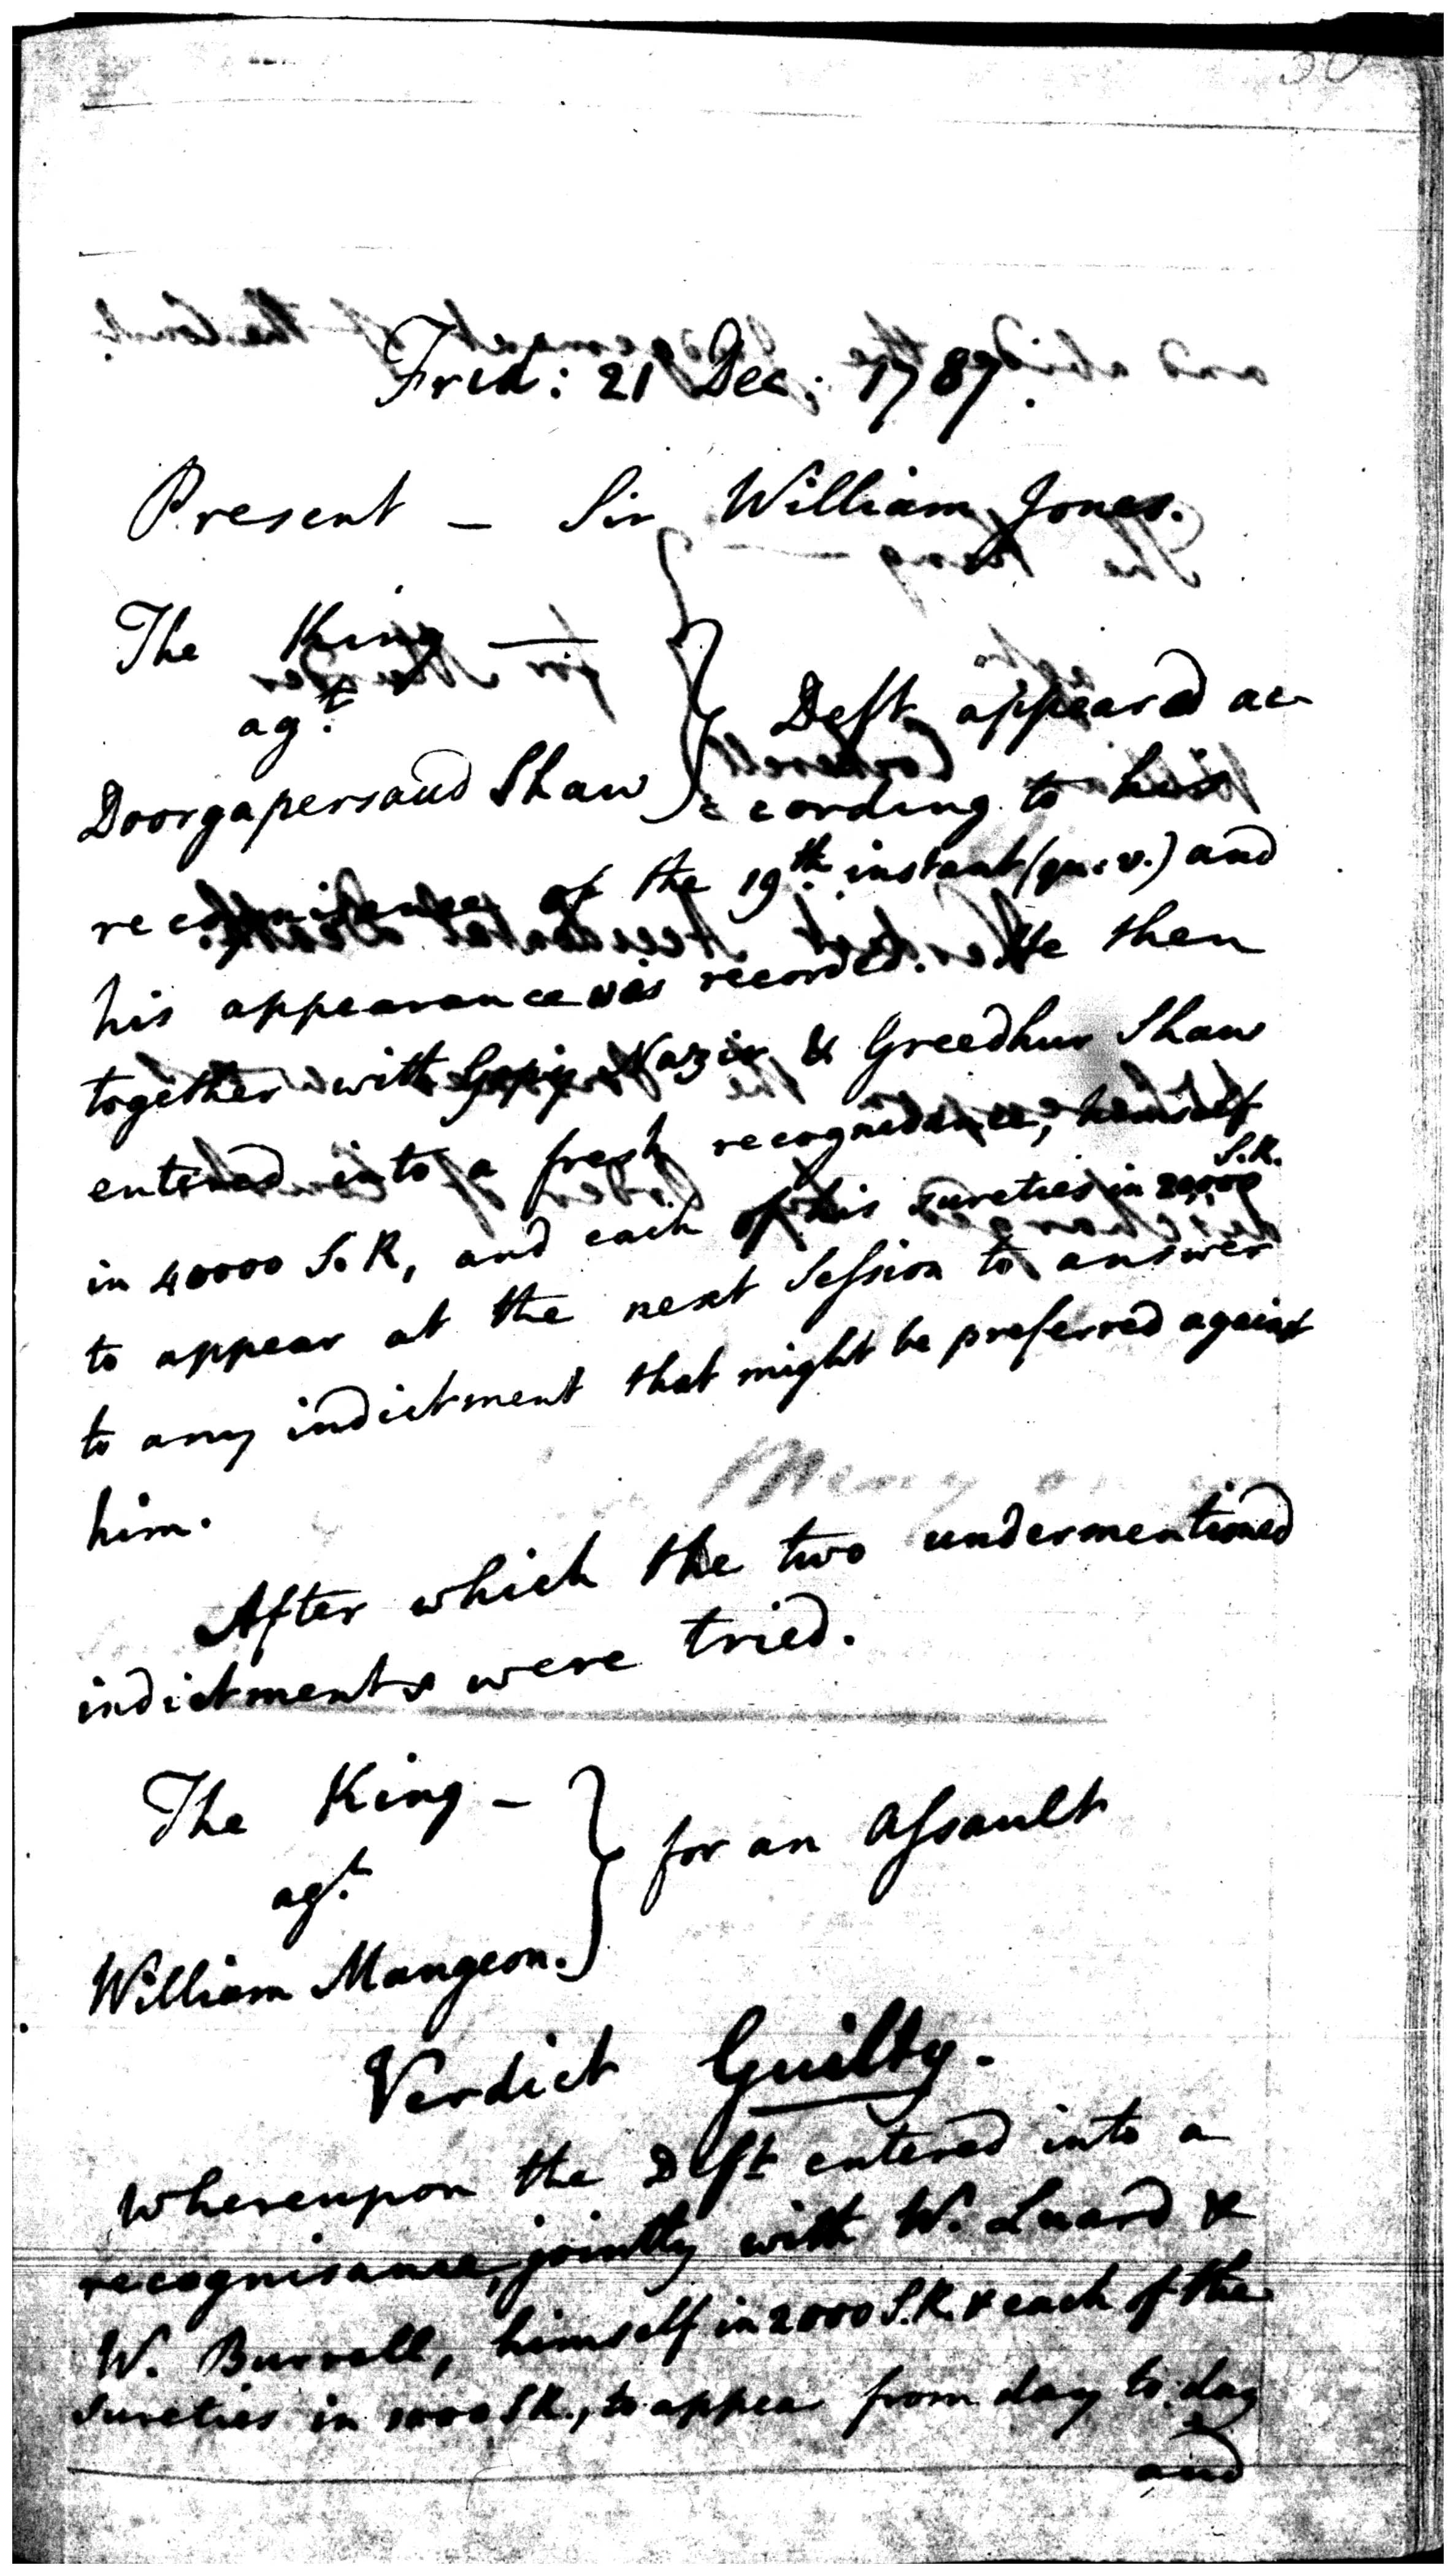 Frid: 21 Dec: 1787.
Present – Sir William Jones.
The King —
agt.
Deft appeared ac-
Doorgapersaud Shaw
cording to his
recognisance of the 19th. instant (qu: v.) and
his appearance was recorded. He then
together with Nazir & Greedhur Shaw
entered into a fresh recognisance, himself
in 40000 S. R, and each of his sureties in 20,000 S.R.
to appear at the next Session to answer
to any indictment that might be preferred against
him.
After which the two undermentioned
indictments were tried.
The King –
agt.
for an Assault
William Mangeon.
Verdict Guilty.
Whereupon the Deft entered into a
recognisance, jointly with W. Luard &
W. Burrell, himself in 2000 S.R. & each of the
sureties in 1000 S.R., to appear from day to day
and